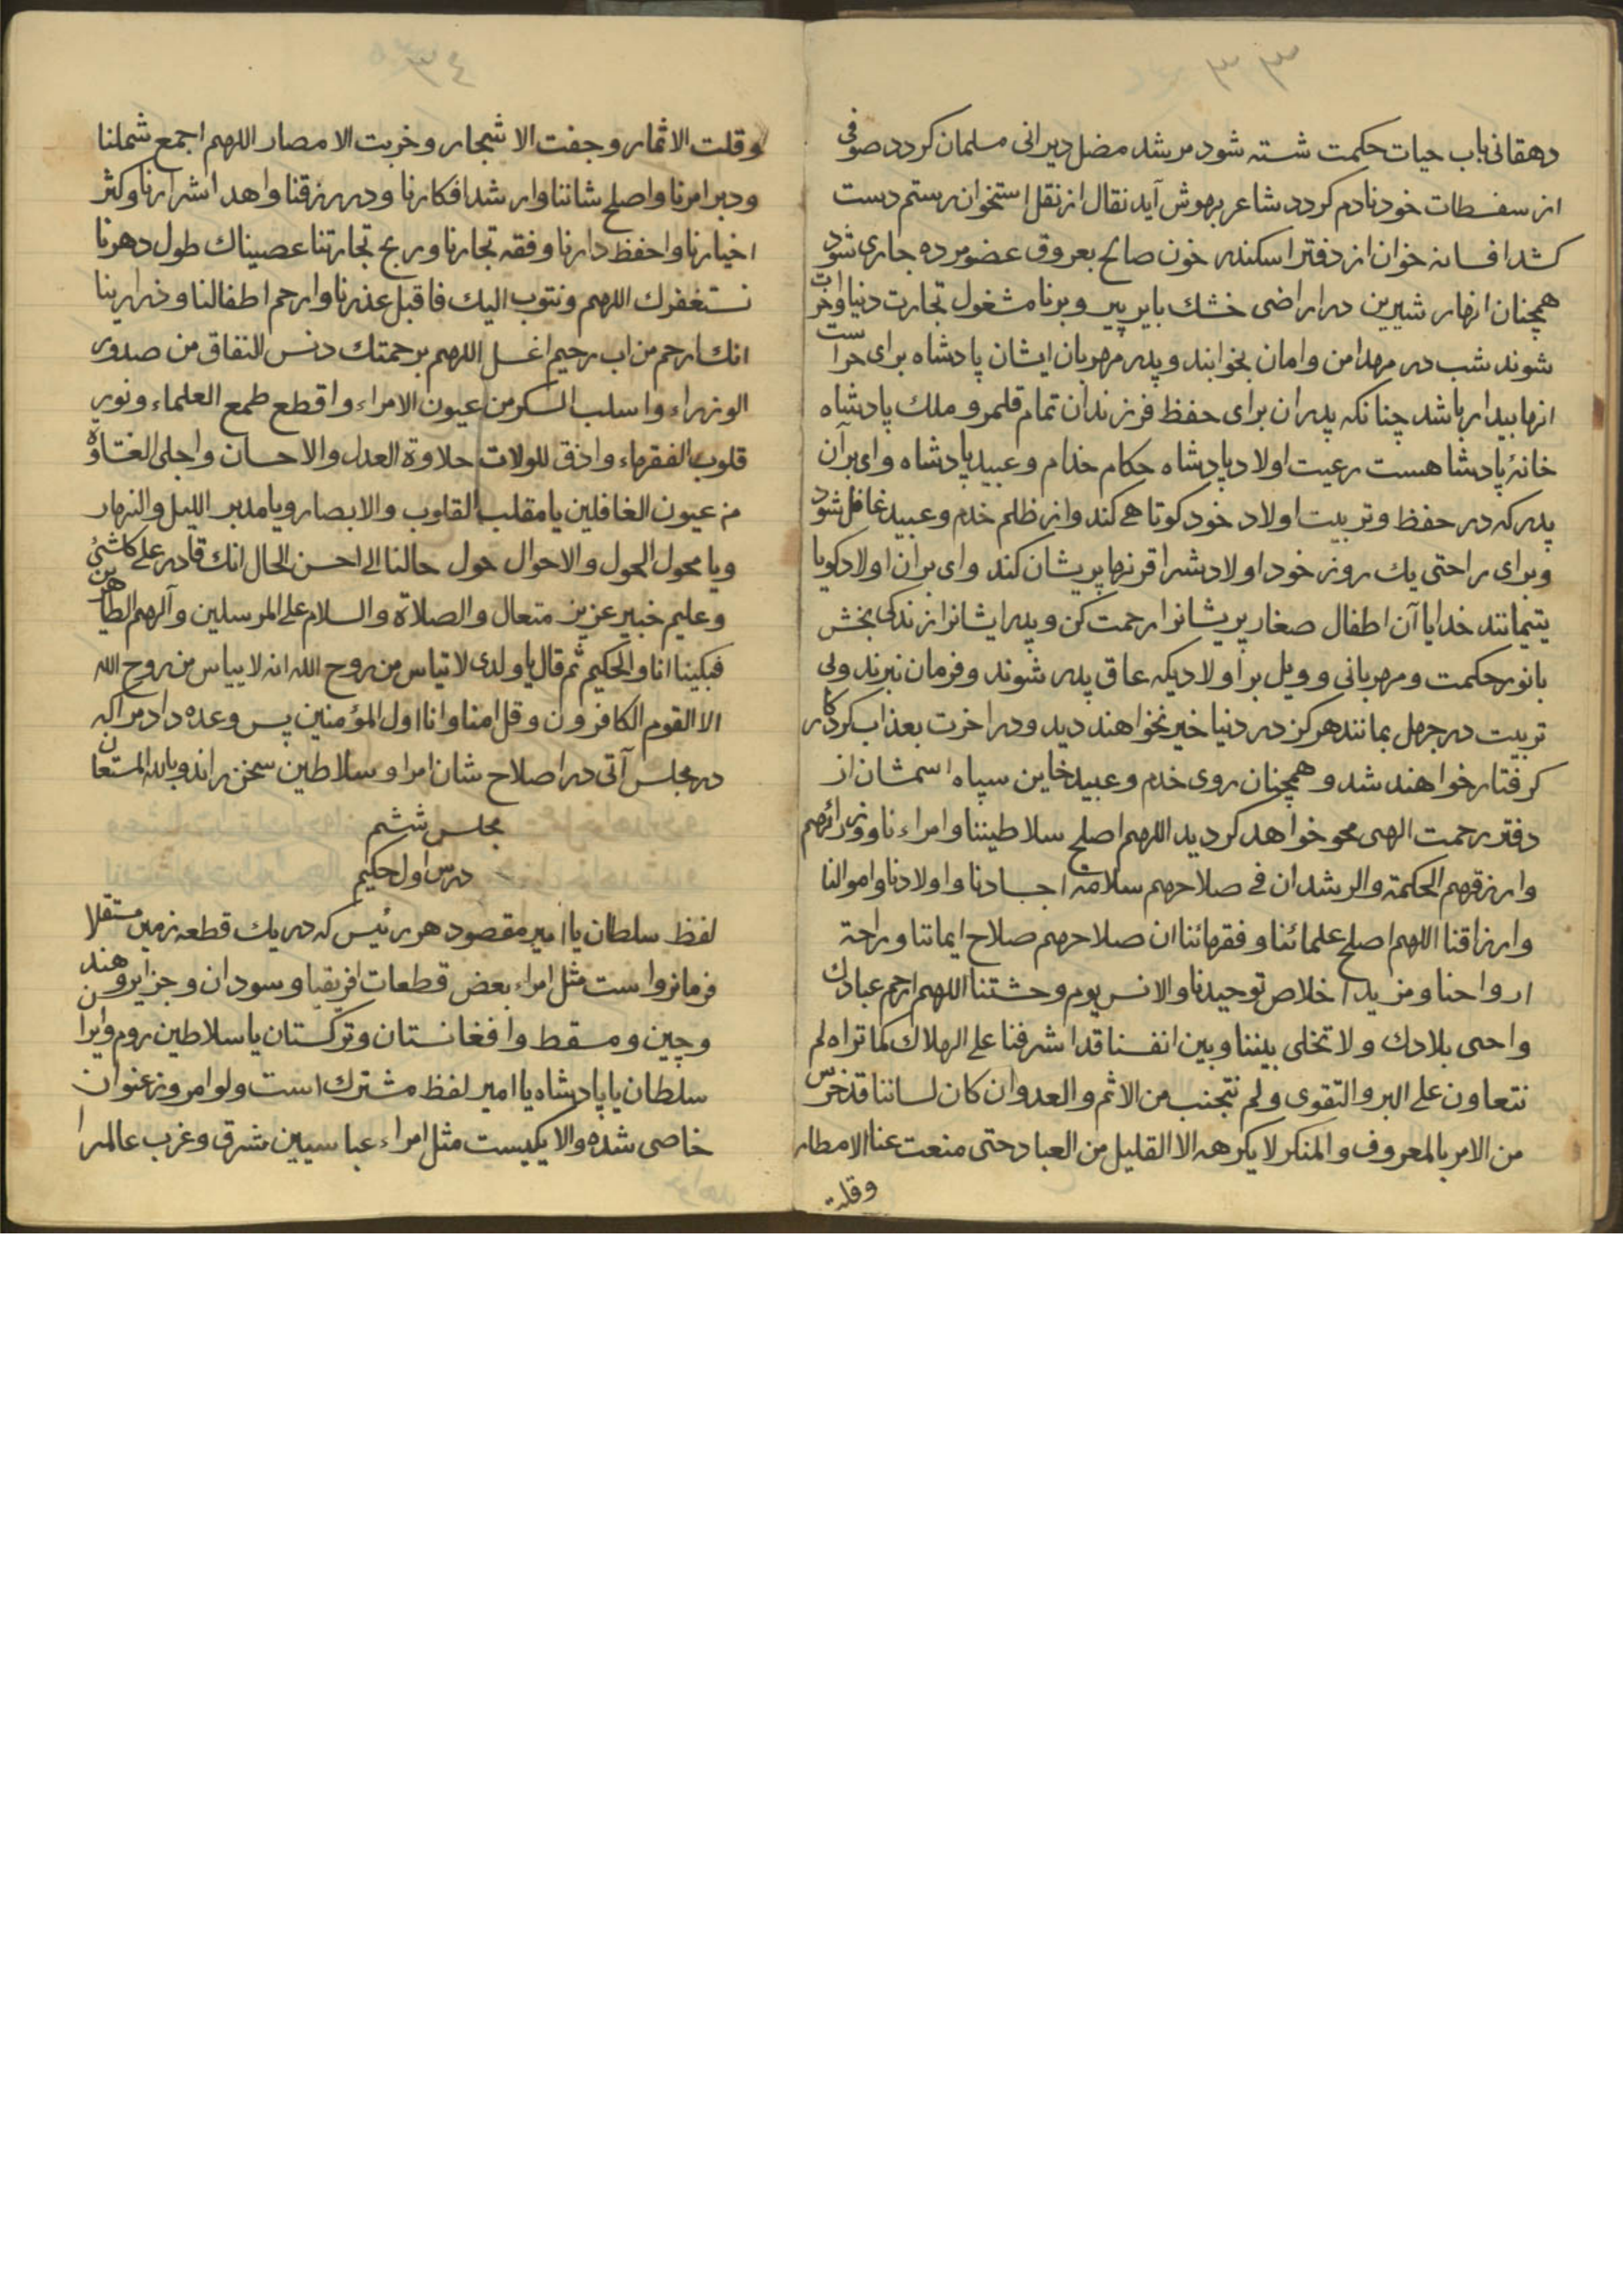 ۳۳
دهقانی باب حیات حکمت شسته شود مرشد مضل دیرانی مسلمان کردد صوفی
از سفسطات خود نادم کردد شاعر بهوش آید نقال از نقل استخوان رستم دست
کشد افسانه خوان از دفتر اسکندر خون صالح بعروق عضو مرده جاری شود
همچنان انهار شیرین در اراضی خشك بایر پیر و برنا مشغول تجارت دنیا واخرت
شوند شب در مهد امن وامان بخوابند و پدر مهربان ایشان پادشاه برای حراست
انها بیدار باشد چنانکه پدران برای حفظ فرزندان تمام قلمرو ملك پادشاه
خانهٔ پادشاهست رعیت اولاد پادشاه حکام خدام وعبید پادشاه وای بران
پدر که در حفظ وتربیت اولاد خود کوتاهی کند واز ظلم خدم وعبید غافل شود
وبرای راحتی یك روز خود اولادشرا قرنها پریشان کند وای بران اولاد کویا
یتیمانند خدایا آن اطفال صغار پریشانرا رحمت کن و پدر ایشانرا زندکی بخش
بانور حکمت ومهربانی وویل بر اولادیکه عاق پدر شوند وفرمان نبرند ولی
تربیت در جهل بمانند هرکز در دنیا خیر نخواهند دید ودر اخرت بعذاب کردکار
کرفتار خواهند شد وهمچنان روی خدم وعبید خاین سیاه اسمشان از
دفتر رحمت الهی محو خواهد کردید اللهم اصلح سلاطیننا وامراءنا ووزرائهم
وارزقهم الحکمة والرشد ان فی صلاحهم سلامة اجسادنا واولادنا واموالنا
وارزاقنا اللهم اصلح علمائنا وفقهائنا ان صلاحهم صلاح ایماننا وراحة
ارواحنا ومزید اخلاص توحیدنا والانس یوم وحشتنا اللهم ارحم عبادك
واحی بلادك ولا تخلی بیننا وبین انفسنا قد اشرفنا علی الهلاك كما تراه لم
نتعاون علی البر والتقوی ولم نتجنب من الاثم والعدوان كان لساننا قد خرس
من الامر بالمعروف والمنكر لا یكرهه الا القلیل من العباد حتی منعت عنا الامطار
وقلت
۳٤
وقلت الاثمار وجفت الاشجار وخربت الامصار اللهم اجمع شملنا
ودبر امرنا واصلح شاننا وارشد افكارنا ودررزقنا واهد اشرارنا وكثر
اخیارنا واحفظ دارنا وفقه تجارنا وربح تجارتنا عصیناك طول دهرنا
نستغفرك اللهم ونتوب الیك فاقبل عذرنا وارحم اطفالنا وذرارینا
انك ارحم من اب رحیم اغسل اللهم برحمتك دنس النفاق من صدور
الوزراء واسلب السكر من عیون الامراء واقطع طمع العلماء ونور
قلوب الفقهاء واذق للولات حلاوة العدل والاحسان واجلی الغشاوة
من عیون الغافلین یا مقلب القلوب والابصار ویا مدبر اللیل والنهار
ویا محول الحول والاحوال حول حالنا الی احسن الحال انك قادر علی كل شئ
وعلیم خبیر عزیز متعال والصلاة والسلام علی المرسلین وآلهم الطاهرین
فبكینا انا والحكیم ثم قال یا ولدی لا تیاس من روح الله انه لا ییاس من روح الله
الا القوم الكافرون وقل امنا وانا اول المؤمنین پس وعده داد مرا که
در مجلس آتی در اصلاح شان امرا و سلاطین سخن راند وبالله المستعان
مجلس ششم
درس اول حکیم
لفظ سلطان یا امیر مقصود هر رئیس که در یك قطعه زمین مستقلا
فرمانروا است مثل امراء بعض قطعات افریقیا وسودان وجزایر وهند
وچین ومسقط وافغانستان وترکستان یا سلاطین روم وایران
سلطان یا پادشاه یا امیر لفظ مشترك است ولو امروز عنوان
خاصی شده والا یکیست مثل امراء عباسیین شرق وغرب عالمرا